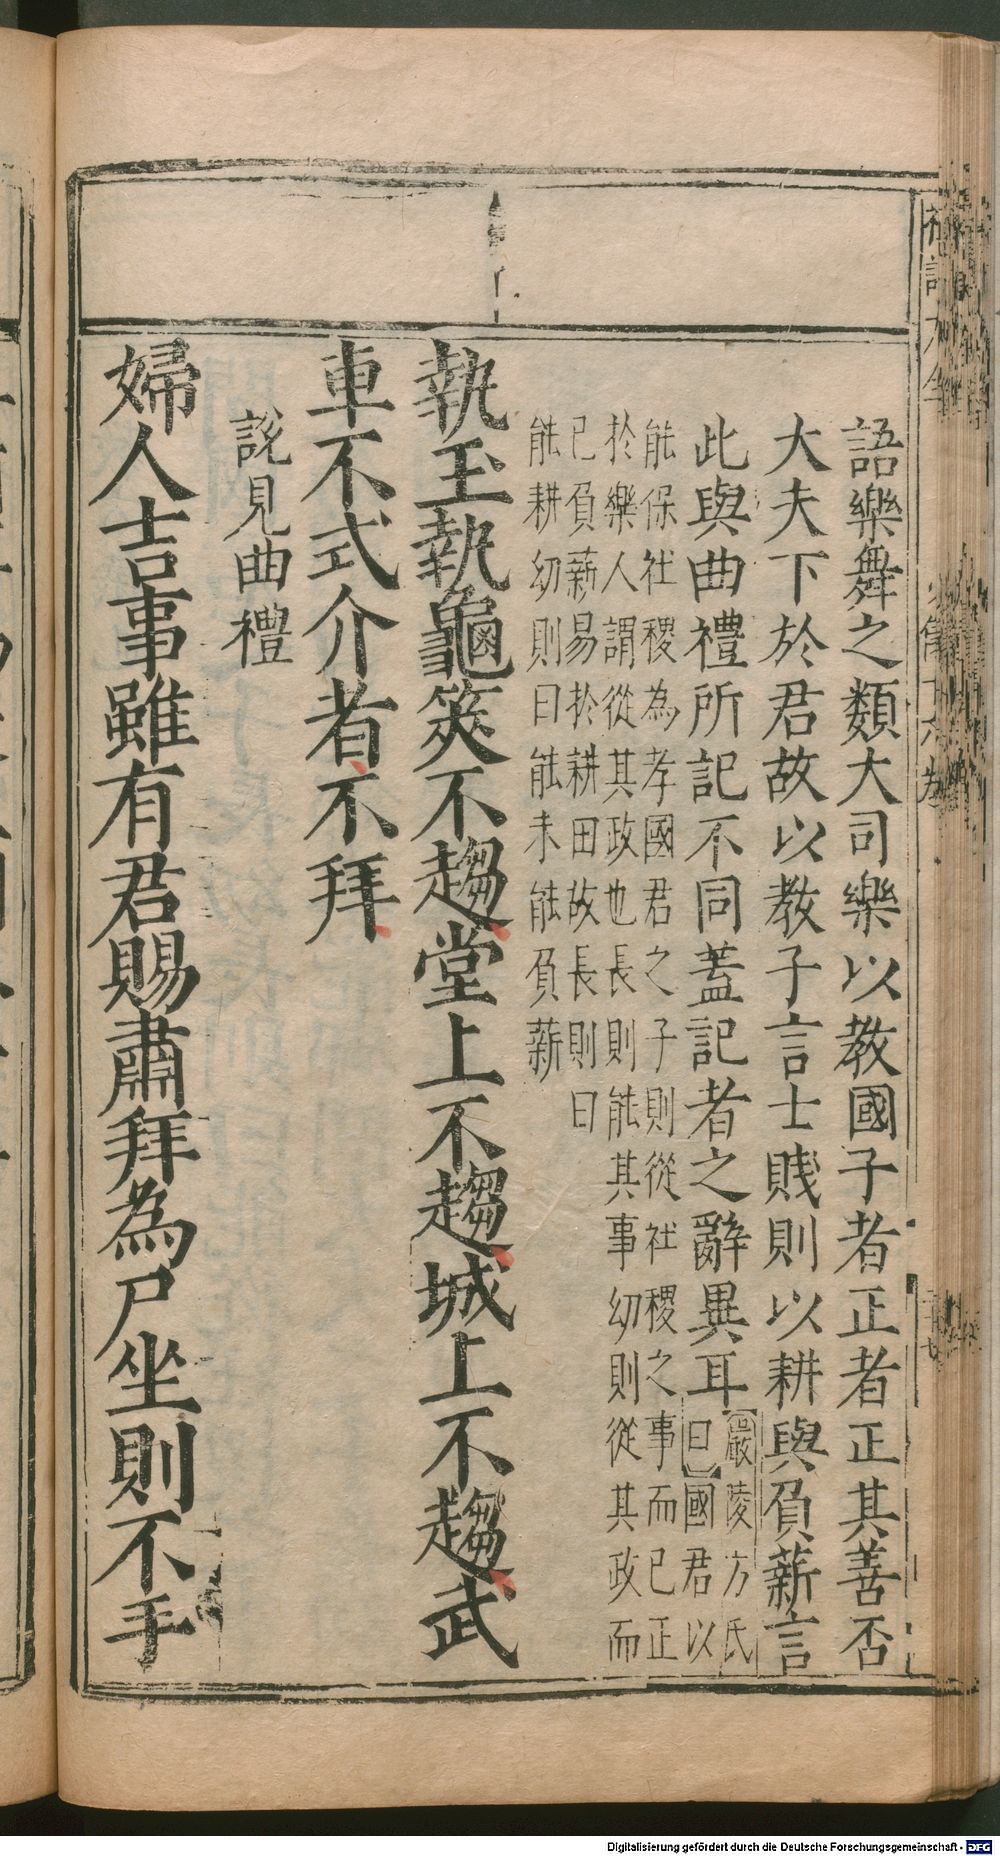 語樂舞之類大司樂以教國子者正者正其善否
大夫下於君故以教子言士賤則以耕與負薪言
此與曲禮所記不同蓋記者之辭異耳
嚴陵方氏
曰國君以
能保社稷為孝國君之子則從社稷之事而已正
於樂人謂從其政也長則能其事幼則從其政而
已負薪易於耕田故長則曰
能耕幼則曰能未能負薪
執玉執龜筴不趨堂上不趨城上不趨武
車不式介者不拜
說見曲禮
婦人吉事雖有君賜肅拜為尸坐則不手
Digitalisierung gefördert durch die Deutsche Forschungsgemeinschaft - DFG